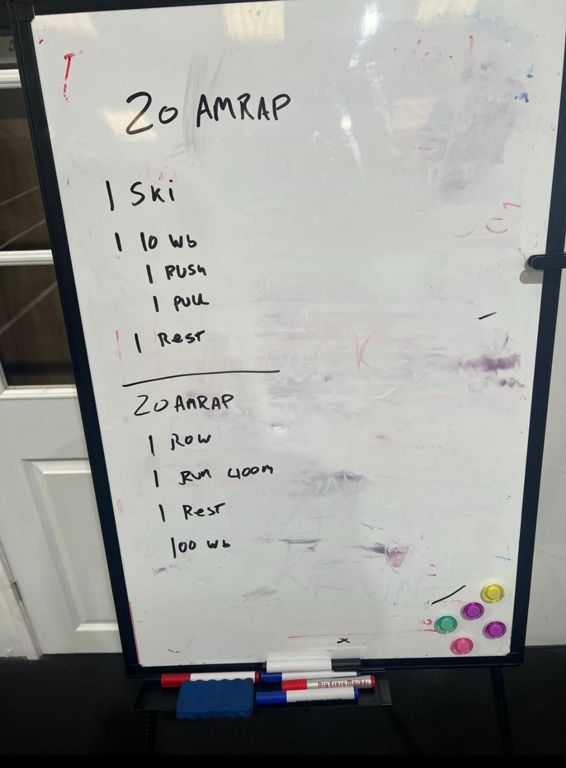 20 AMRAP
1 Ski
1 10 Wb
1 PUSH
1 PULL
1 REST
20 AMRAP
1 ROW
1 RUN 400m
1 REST
100 Wb
x
Dry Erase Marker